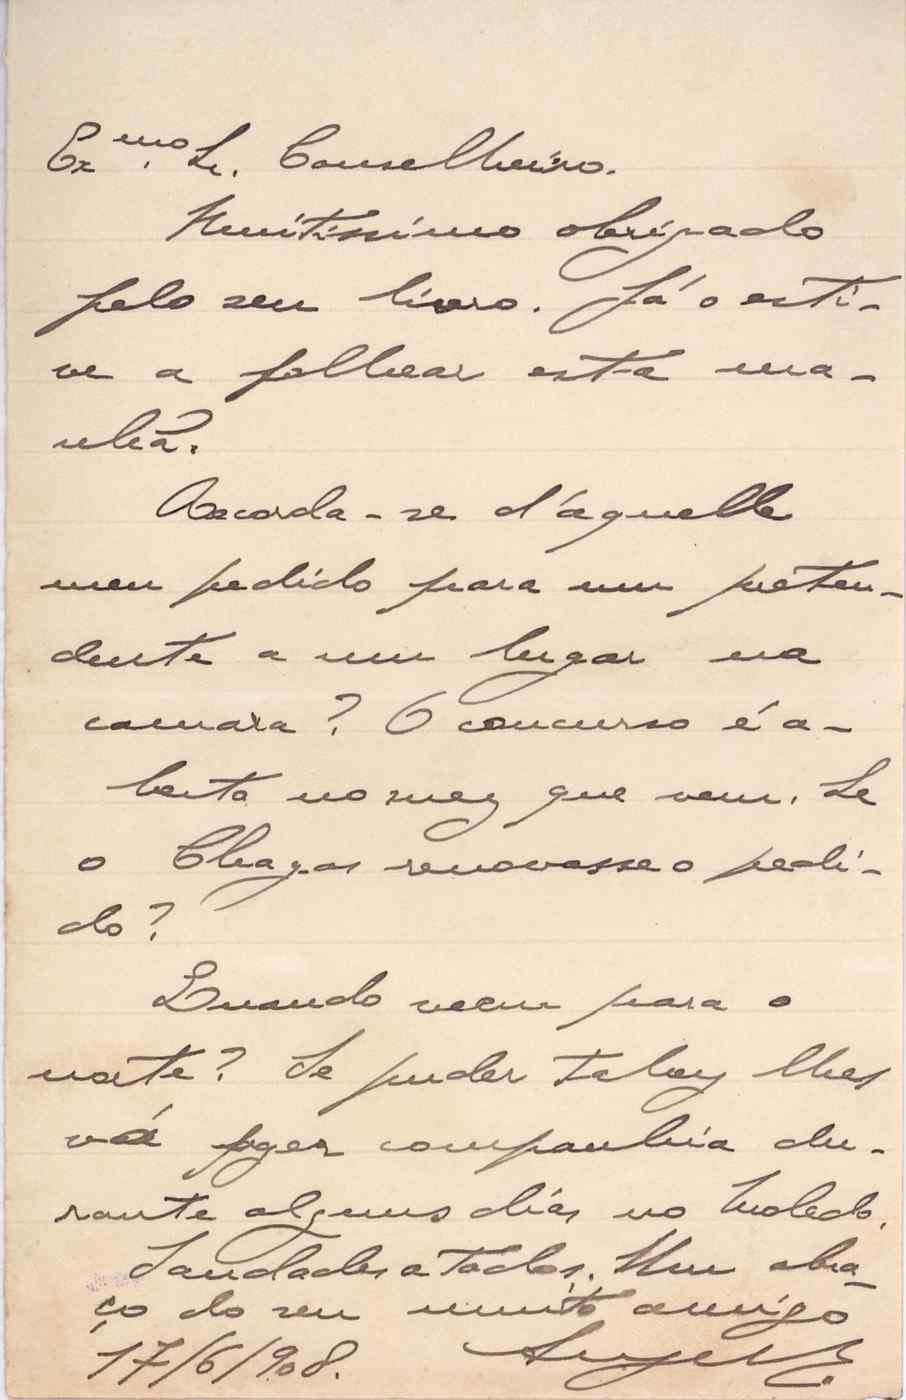 Ex.mo Sr. Conselheiro.
Muitissimo obrigado
pelo seu livro. Já o esti-
ve a folhear esta ma-
nhã.
Recorda-se d'aquelle
meu pedido para um preten-
dente a um lugar na
camara? O concurso é a-
berto no mez que vem. Se
o Chagas renovasse o pedi-
do?
Quando veem para o
norte? Se puder talvez lhes
vá fazer companhia du-
rante alguns dias no Moledo.
Saudades a todos. Um abra-
ço do seu muito amigo
17/6/908.